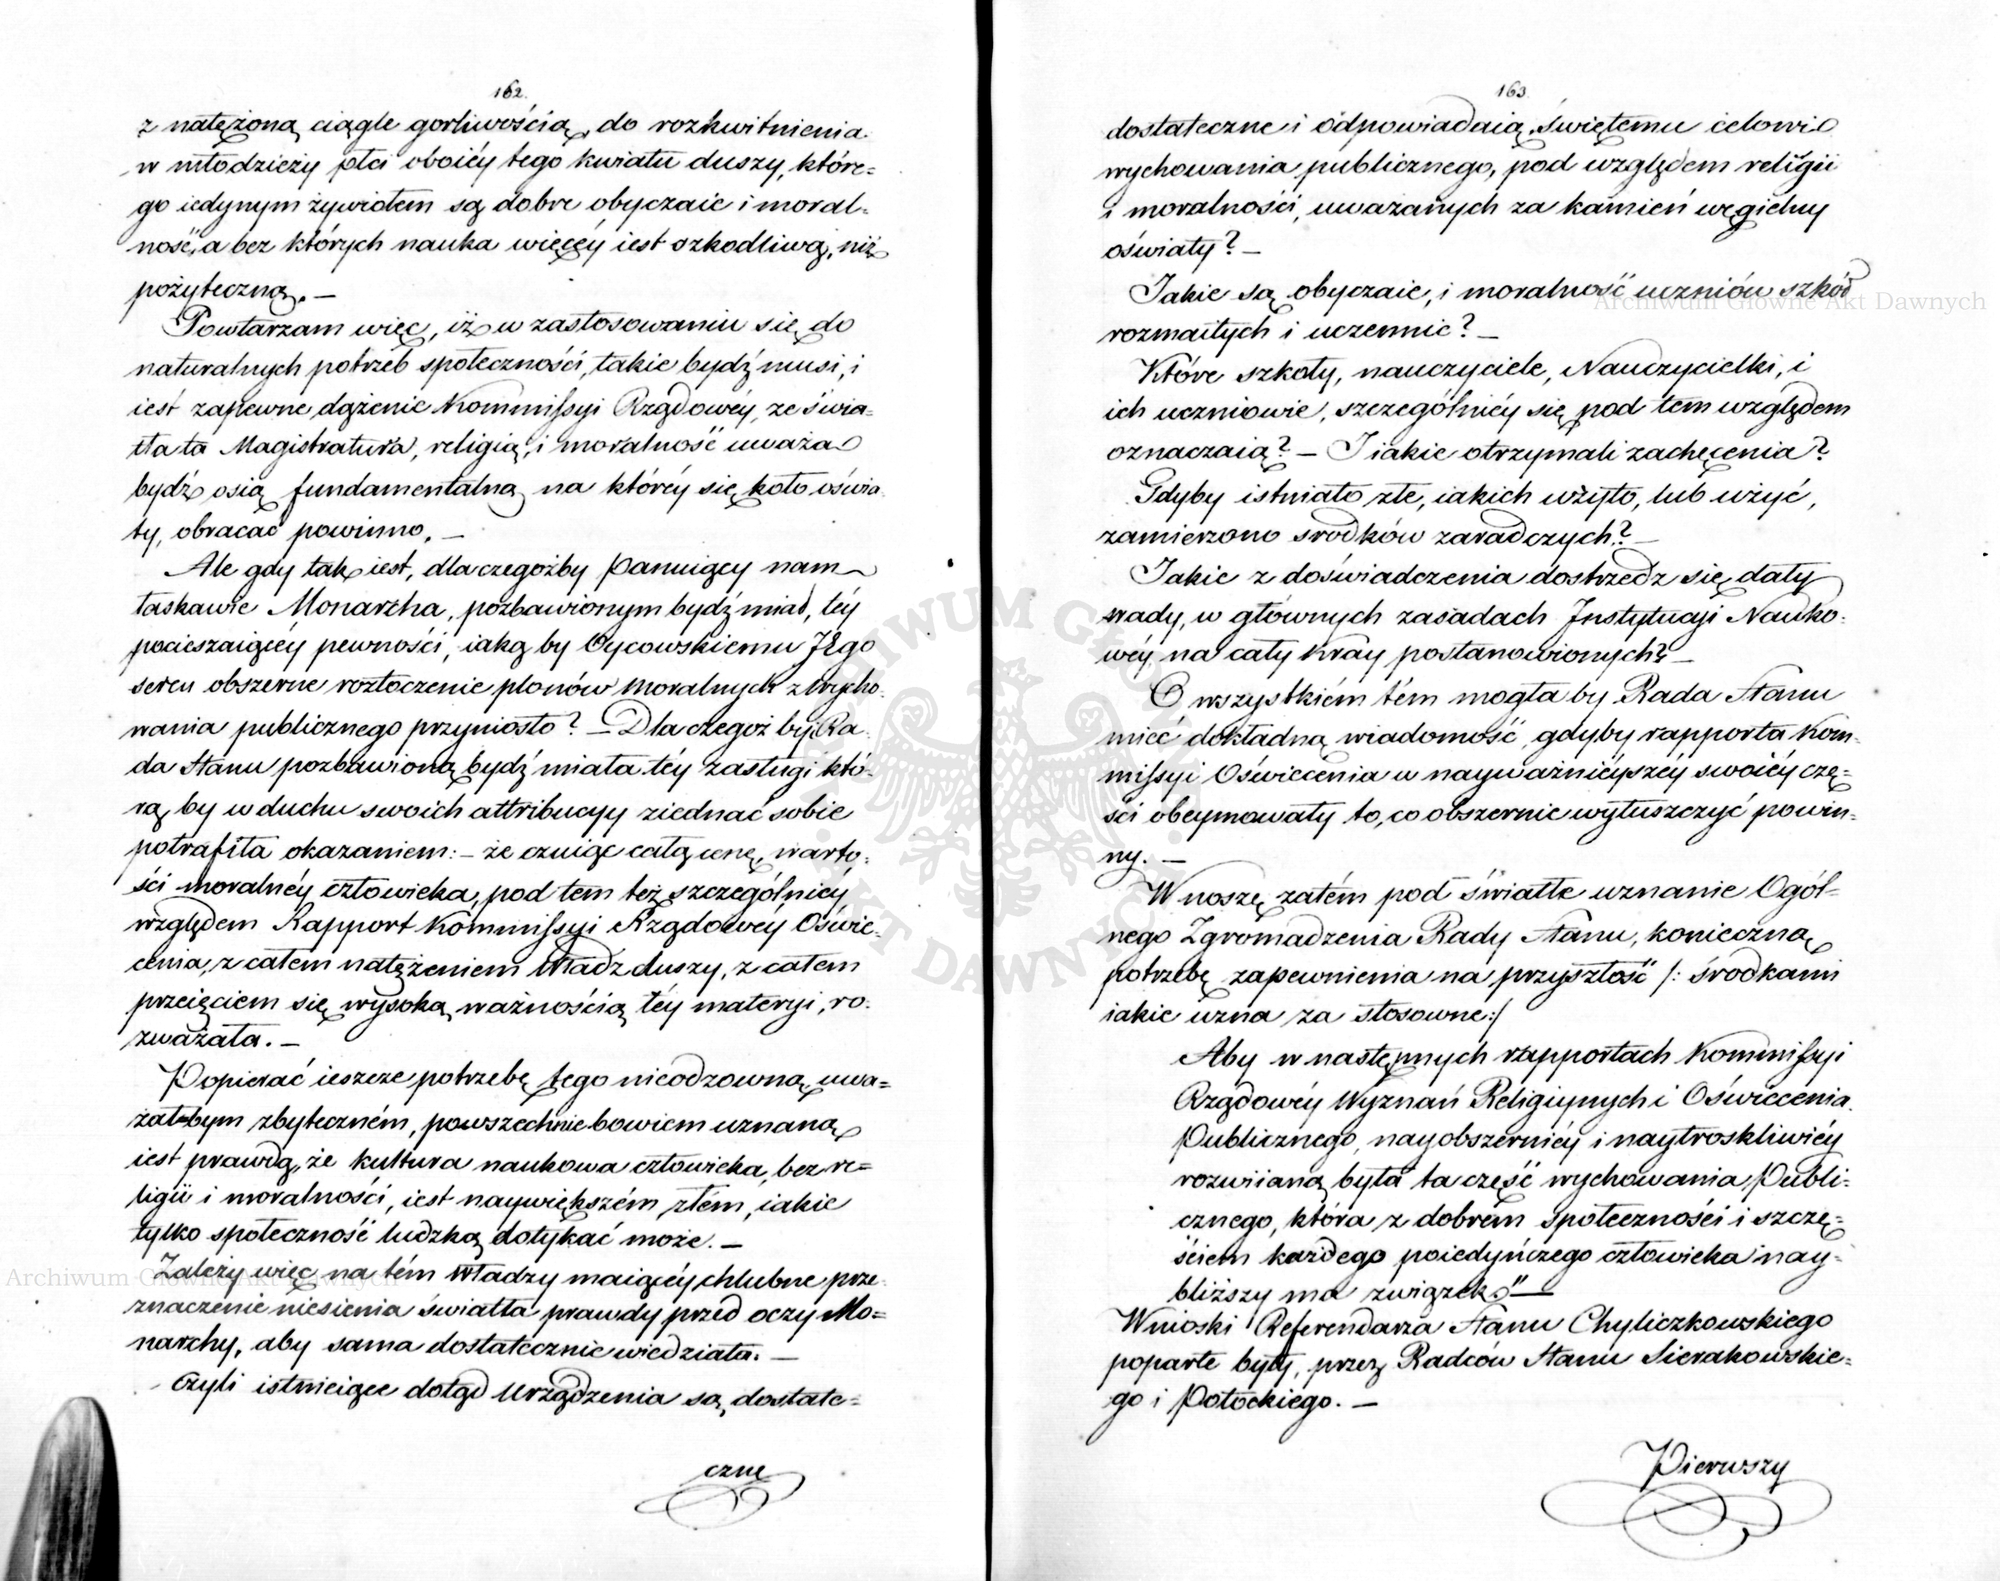 162.
z natężoną ciągle gorliwością, do rozkwitnienia
w młodzieży płci oboiéy tego kwiatu duszy, które-
go iedynym żywiołem są dobre obyczaie i moral-
ność, a bez których nauka więcéy iest szkodliwą, niż
pożyteczną. —
Powtarzam więc, iż w zastosowaniu się do
naturalnych potrzeb społeczności, takie bydź musi, i
iest zapewne dążenie Kommissyi Rządowéy, że świa-
tła ta Magistratura, religią, i moralność uważa
bydź osią fundamentalną na któréy się koło oświa-
ty, obracać powinno. —
Ale gdy tak iest, dla czegożby Panuiący nam
łaskawie Monarcha, pozbawionym bydź miał, téy
pocieszaiącéy pewności, iaką by Oycowskiemu JEgo
sercu obszerne roztoczenie plonów moralnych z wycho-
wania publicznego przyniosło? — Dla czegoż by Ra-
da Stanu pozbawioną bydź miała téy zasługi któ-
rą by w duchu swoich attribucyy ziednać sobie
potrafiła okazaniem: — że czuiąc całą cenę, warto-
ści moralnéy człowieka, pod tem też szczególniéy
względem Rapport Kommissyi Rządowéy Oświe-
cenia, z całem natężeniem Władz duszy, z całem
przeięciem się wysoką ważnością téy materyi, ro-
zważała. —
Popierać ieszcze potrzebę tego nieodzowną uwa-
żałbym zbyteczném, powszechnie bowiem uznaną
iest prawdą, że kultura naukowa człowieka, bez re-
ligii i moralności, iest naywiększém złém, iakie
tylko społeczność ludzką dotykać może. —
Zależy więc na tém Władzy maiącéy chlubne prze-
znaczenie niesienia światła prawdy przed oczy Mo-
narchy, aby sama dostatecznie wiedziała. —
Czyli istnieiące dotąd Urządzenia są dostate-
czne
163.
dostateczne i odpowiadaią świętemu celowi
wychowania publicznego, pod względem religii
i moralności, uważanych za kamień węgielny
oświaty? —
Jakie są obyczaie, i moralność uczniów szkół
rozmaitych i uczennic? —
Które szkoły, nauczyciele, Nauczycielki, i
ich uczniowie, szczególniéy się pod tem względem
oznaczaią? — I iakie otrzymali zachęcenia?
Gdyby istniało złe, iakich użyto, lub użyć,
zamierzono srodków zaradczych? —
Jakie z doświadczenia dostrzedz się dały
wady, w głównych zasadach Instytucyi Nauko-
wéy na cały kray postanowionych? —
O wszystkiém tém mogła by Rada Stanu
mieć dokładną wiadomość, gdyby rapporta Kom-
missyi Oświecenia w nayważniéyszéy swoiéy czę-
ści obeymowały to, co obszernie wyłuszczyć powin-
ny. —
Wnoszę zatém pod światłe uznanie Ogól-
nego Zgromadzenia Rady Stanu, konieczną
potrzebę zapewnienia na przyszłość /: środkami
iakie uzna za stosowne :/
Aby w następnych rapportach Kommissyi
Rządowéy Wyznań Religiynych i Oświecenia
Publicznego, nayobszerniéy i naytroskliwiéy
rozwiianą była ta część wychowania Publi-
cznego, która z dobrem społeczności i szczę-
ściem każdego poiedyńczego człowieka nay-
bliższy ma związek." —
Wnioski Referendarza Stanu Chyliczkowskiego
poparte były, przez Radców Stanu Sierakowskie-
go i Potockiego. —
Pierwszy
Archiwum Główne Akt Dawnych
Archiwum Główne Akt Dawnych
ARCHIWUM GŁÓWNE AKT DAWNYCH